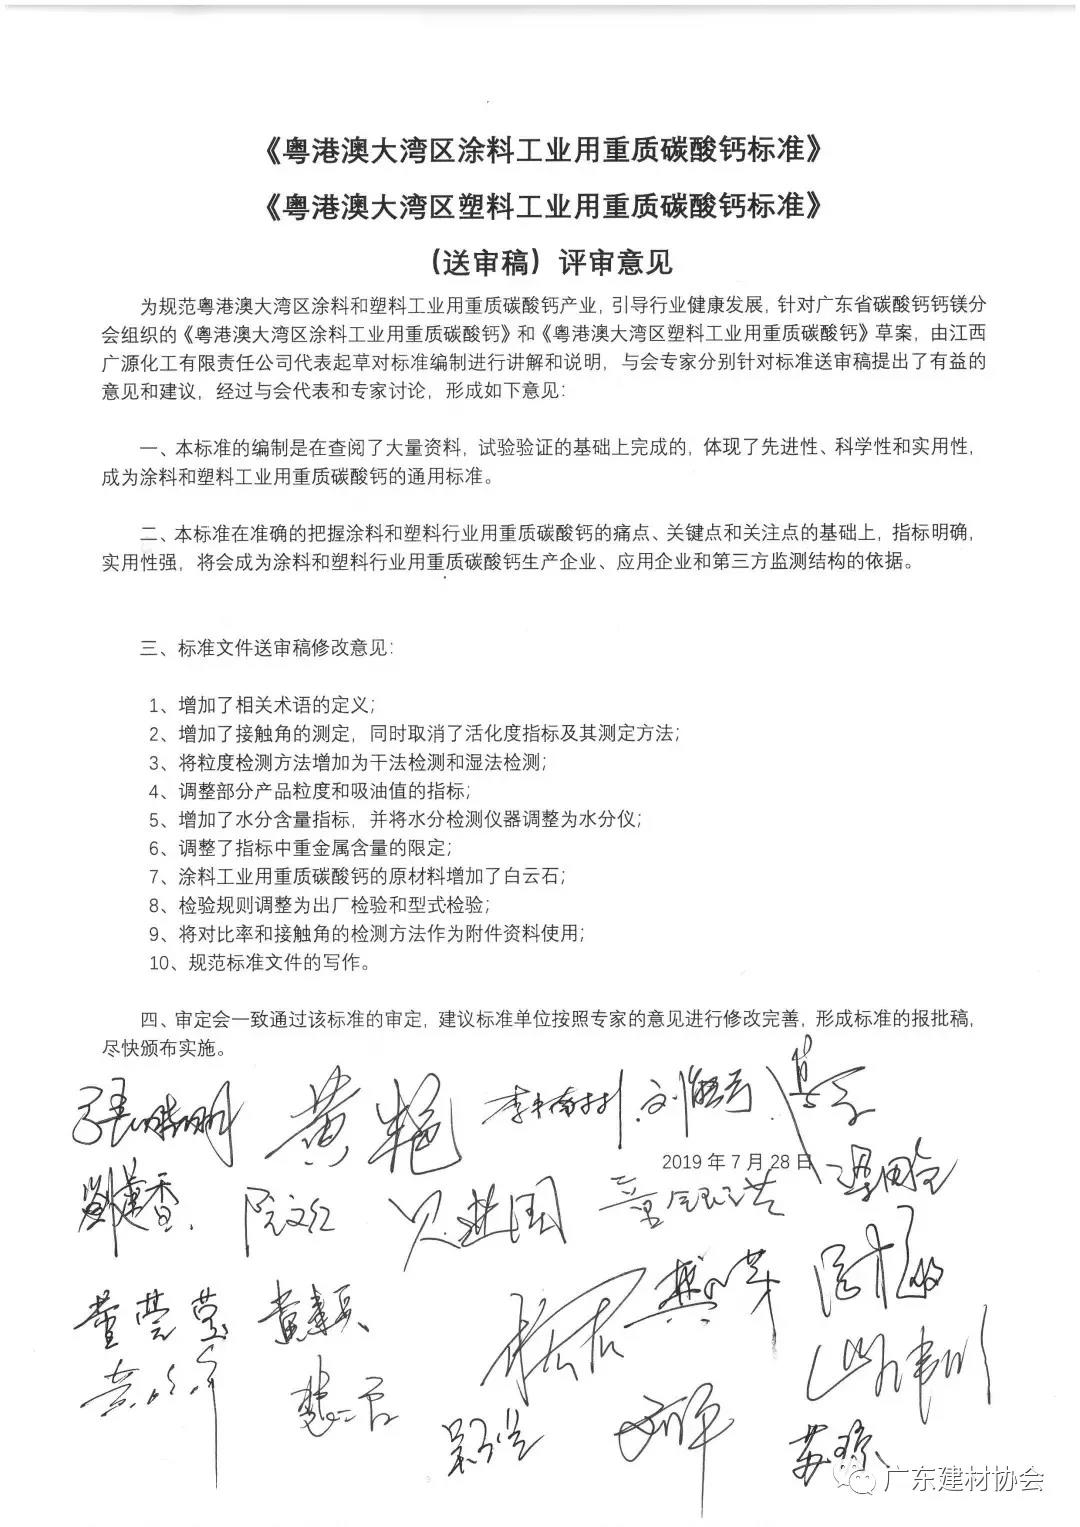 《粤港澳大湾区涂料工业用重质碳酸钙标准》
《粤港澳大湾区塑料工业用重质碳酸钙标准》
（送审稿）评审意见
为规范粤港澳大湾区涂料和塑料工业用重质碳酸钙产业，引导行业健康发展，针对广东省碳酸钙钙镁分
会组织的《粤港澳大湾区涂料工业用重质碳酸钙》和《粤港澳大湾区塑料工业用重质碳酸钙》草案，由江西
广源化工有限责任公司代表起草对标准编制进行讲解和说明，与会专家分别针对标准送审稿提出了有益的
意见和建议，经过与会代表和专家讨论，形成如下意见：
一、本标准的编制是在查阅了大量资料，试验验证的基础上完成的，体现了先进性、科学性和实用性，
成为涂料和塑料工业用重质碳酸钙的通用标准。
二、本标准在准确的把握涂料和塑料行业用重质碳酸钙的痛点、关键点和关注点的基础上，指标明确，
实用性强，将会成为涂料和塑料行业用重质碳酸钙生产企业、应用企业和第三方监测结构的依据。
三、标准文件送审稿修改意见：
1、增加了相关术语的定义；
2、增加了接触角的测定，同时取消了活化度指标及其测定方法；
3、将粒度检测方法增加为干法检测和湿法检测；
4、调整部分产品粒度和吸油值的指标；
5、增加了水分含量指标，并将水分检测仪器调整为水分仪；
6、调整了指标中重金属含量的限定；
7、涂料工业用重质碳酸钙的原材料增加了白云石；
8、检验规则调整为出厂检验和型式检验；
9、将对比率和接触角的检测方法作为附件资料使用；
10、规范标准文件的写作。
四、审定会一致通过该标准的审定，建议标准单位按照专家的意见进行修改完善，形成标准的报批稿，
尽快颁布实施。
黄艳
2019 年 7 月 28 日
阮文红
广东建材协会